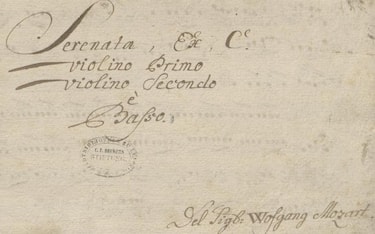 Serenata, Ex, C.
violino Primo
violino Secondo
è
Basso.
Del Sigr: Wofgang Mozart.